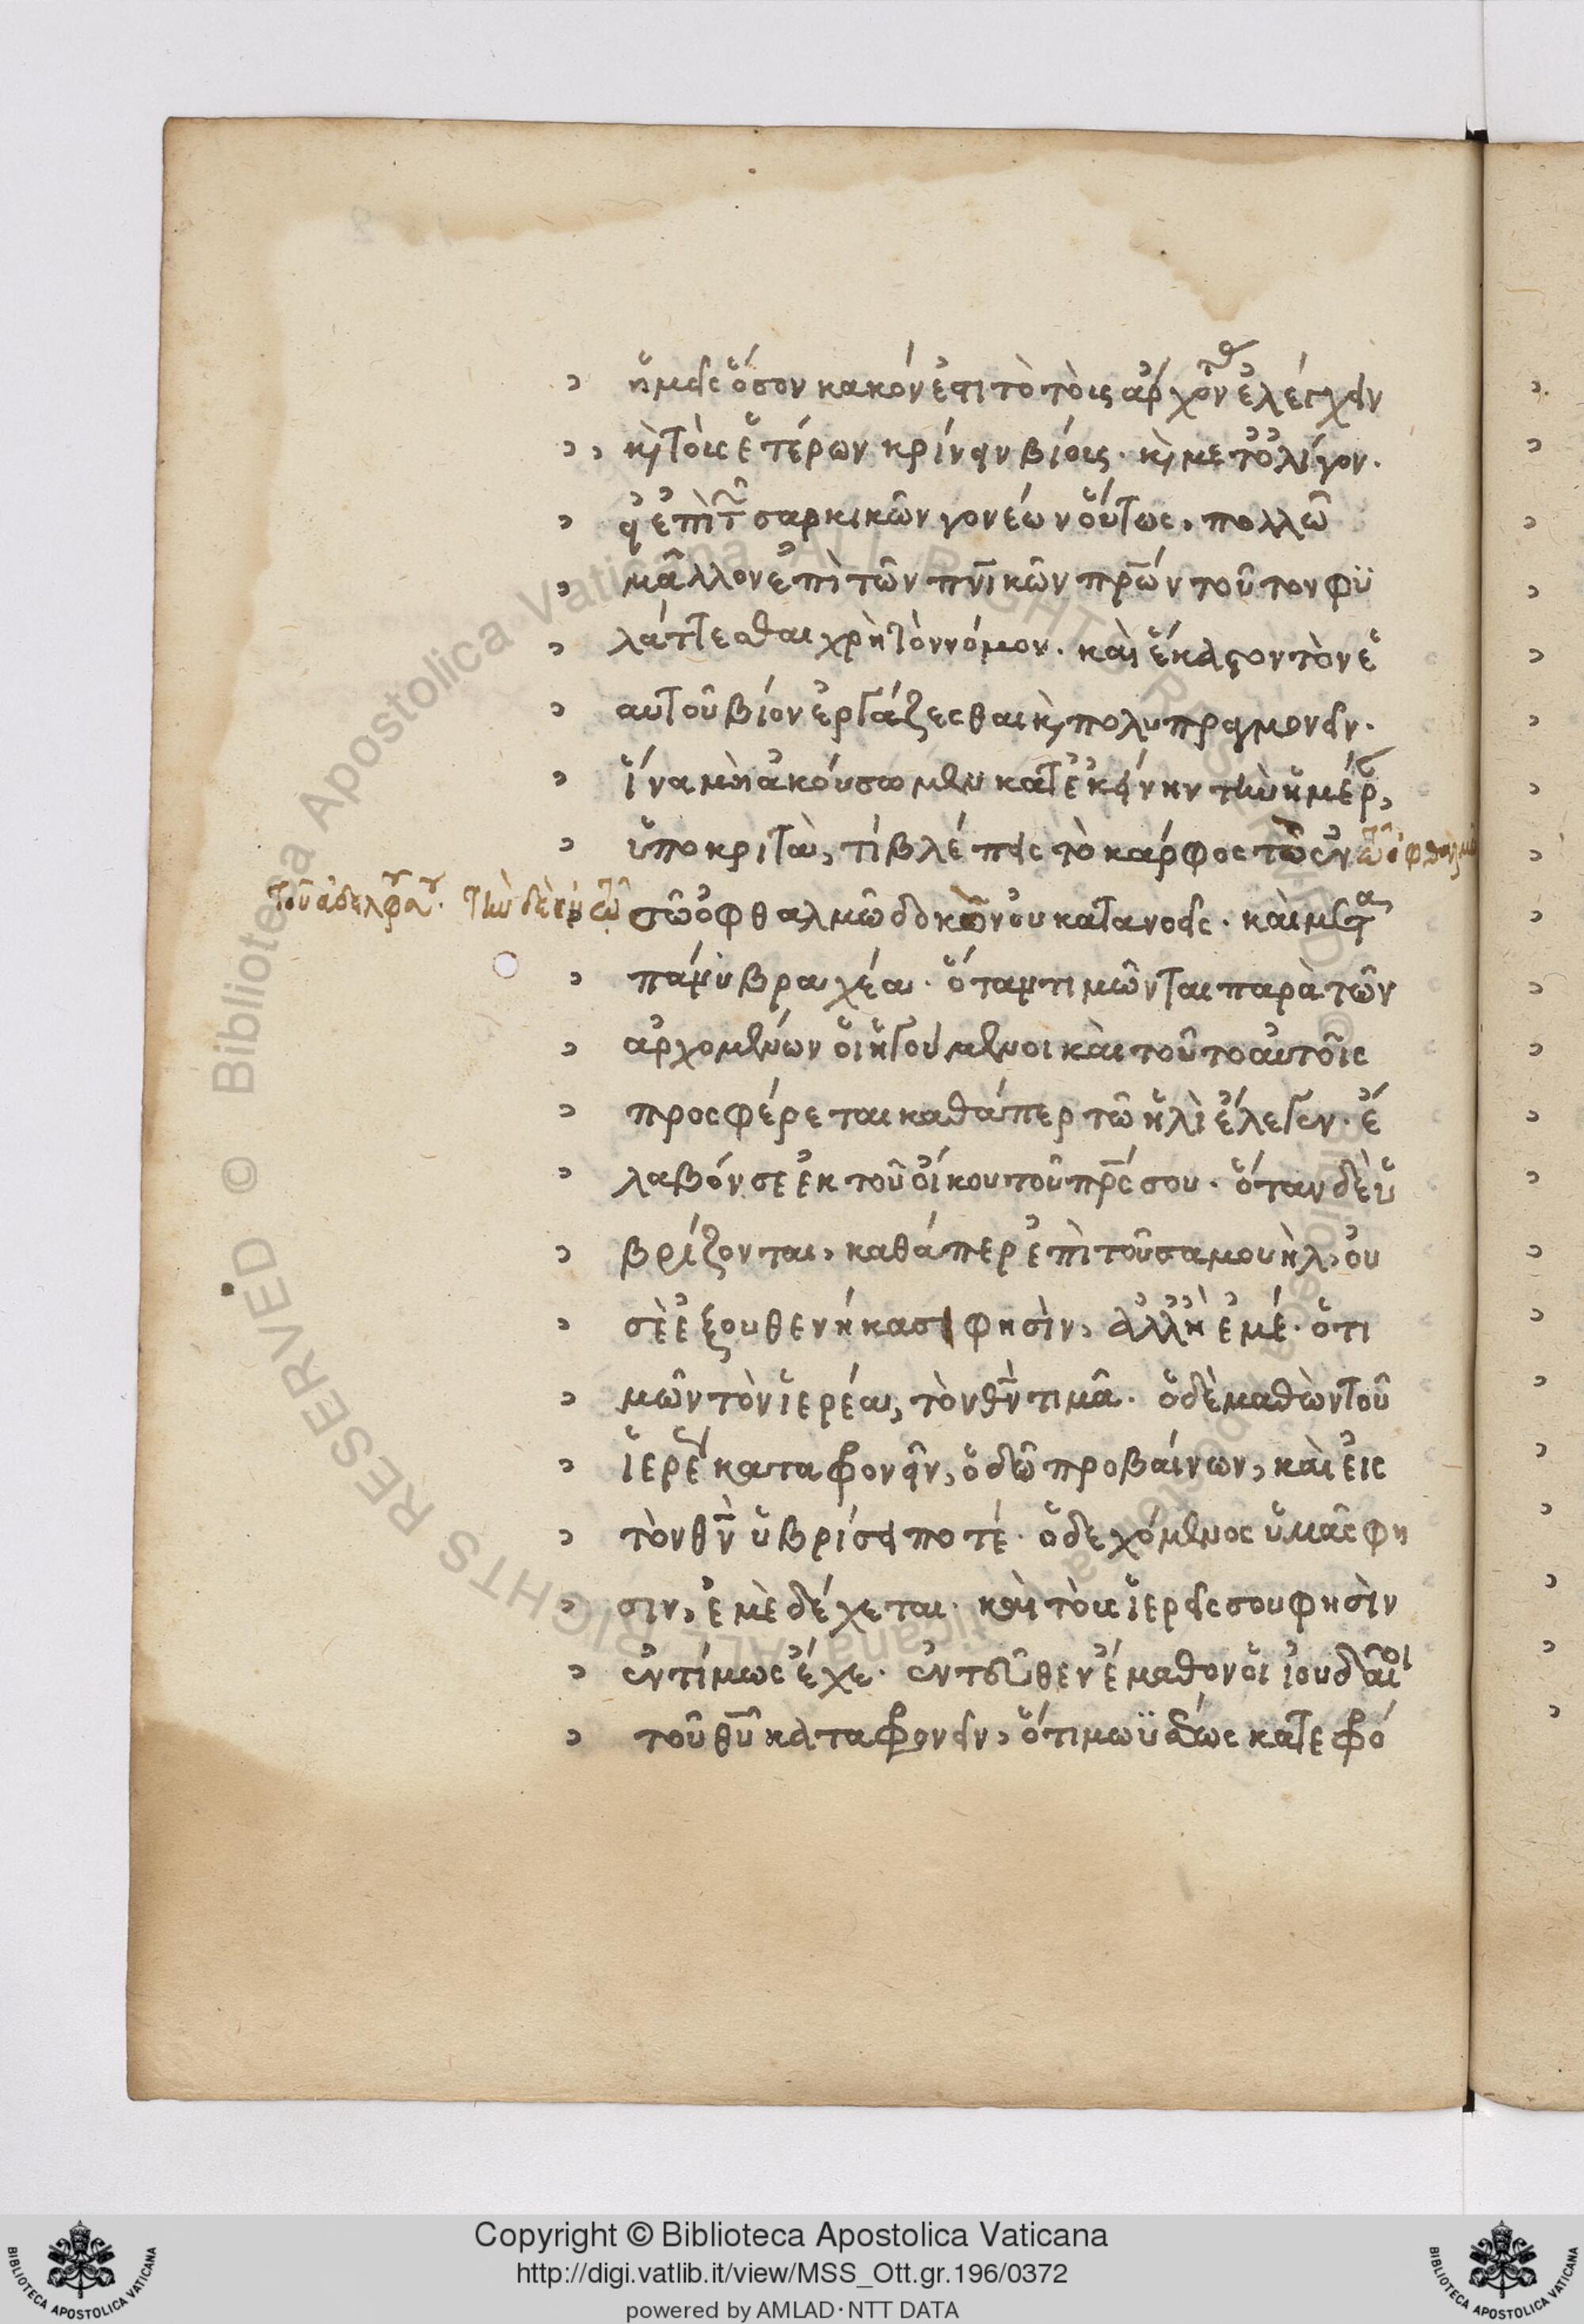 ἡμεῖς ὅσον κακόν ἐστι τὸ τοὺς ἄρχοντας ἐλέγχειν
κὶ τοὺς ἑτέρων κρίνειν βίους. κὶ μετ' ὀλίγον.
εἰ ἐπὶ τῶν σαρκικῶν γονέων οὕτως, πολλῶ
μᾶλλον ἐπὶ τῶν πνικῶν πρων τοῦτον φυ
λάττεσθαι χρὴ τὸν νόμον. καὶ ἕκαστον τὸν ἑ
αυτοῦ βίον ἐργάζεσθαι κὶ πολυπραγμονεῖν.
ἵνα μὴ ἀκούσωμεν κατ' ἐκείνην τὴν ἡμέραν,
ὑποκριτὰ, τί βλέπεις τὸ κάρφος τὸ ἐν τῶ ὀφθαλμῶ
τοῦ ἀδελφοῦ σου. τὴν δὲ ἐν τῶ
σῶ ὀφθαλμῶ δοκὸν οὐ κατανοεῖς. καὶ μετὰ
πάνυ βραχέα. ὅταν τιμῶνται παρὰ τῶν
ἀρχομένων οἱ ἡγούμενοι καὶ τοῦτο αὐτοῖς
προσφέρεται καθάπερ τῶ ἠλὶ ἔλεγεν. ἔ
λαβόν σε ἐκ τοῦ οἴκου τοῦ πρς σου. ὅταν δὲ ὑ
βρίζονται, καθάπερ ἐπὶ τοῦ σαμουὴλ, οὐ
σὲ ἐξουθενήκασι φησὶν, ἀλλ' ἢ ἐμέ. ὁ τι
μῶν τὸν ἱερέα, τὸν θν τιμᾶ. ὁ δὲ μαθὼν τοῦ
ἱερέως καταφρονεῖν, ὁδῶ προβαίνων, καὶ εἰς
τὸν θν ὑβρίσει ποτέ. ὁ δεχόμενος ὑμᾶς φη
σιν, ἐμὲ δέχεται. καὶ τοὺς ἱερεῖς σου φησὶν
ἐντίμως ἔχε. ἐντεῦθεν ἔμαθον οἱ ἰουδαῖοι
τοῦ θυ καταφρονεῖν, ὅτι μωϋσέως κατεφρό
Copyright © Biblioteca Apostolica Vaticana
http://digi.vatlib.it/view/MSS_Ott.gr.196/0372
powered by AMLAD·NTT DATA